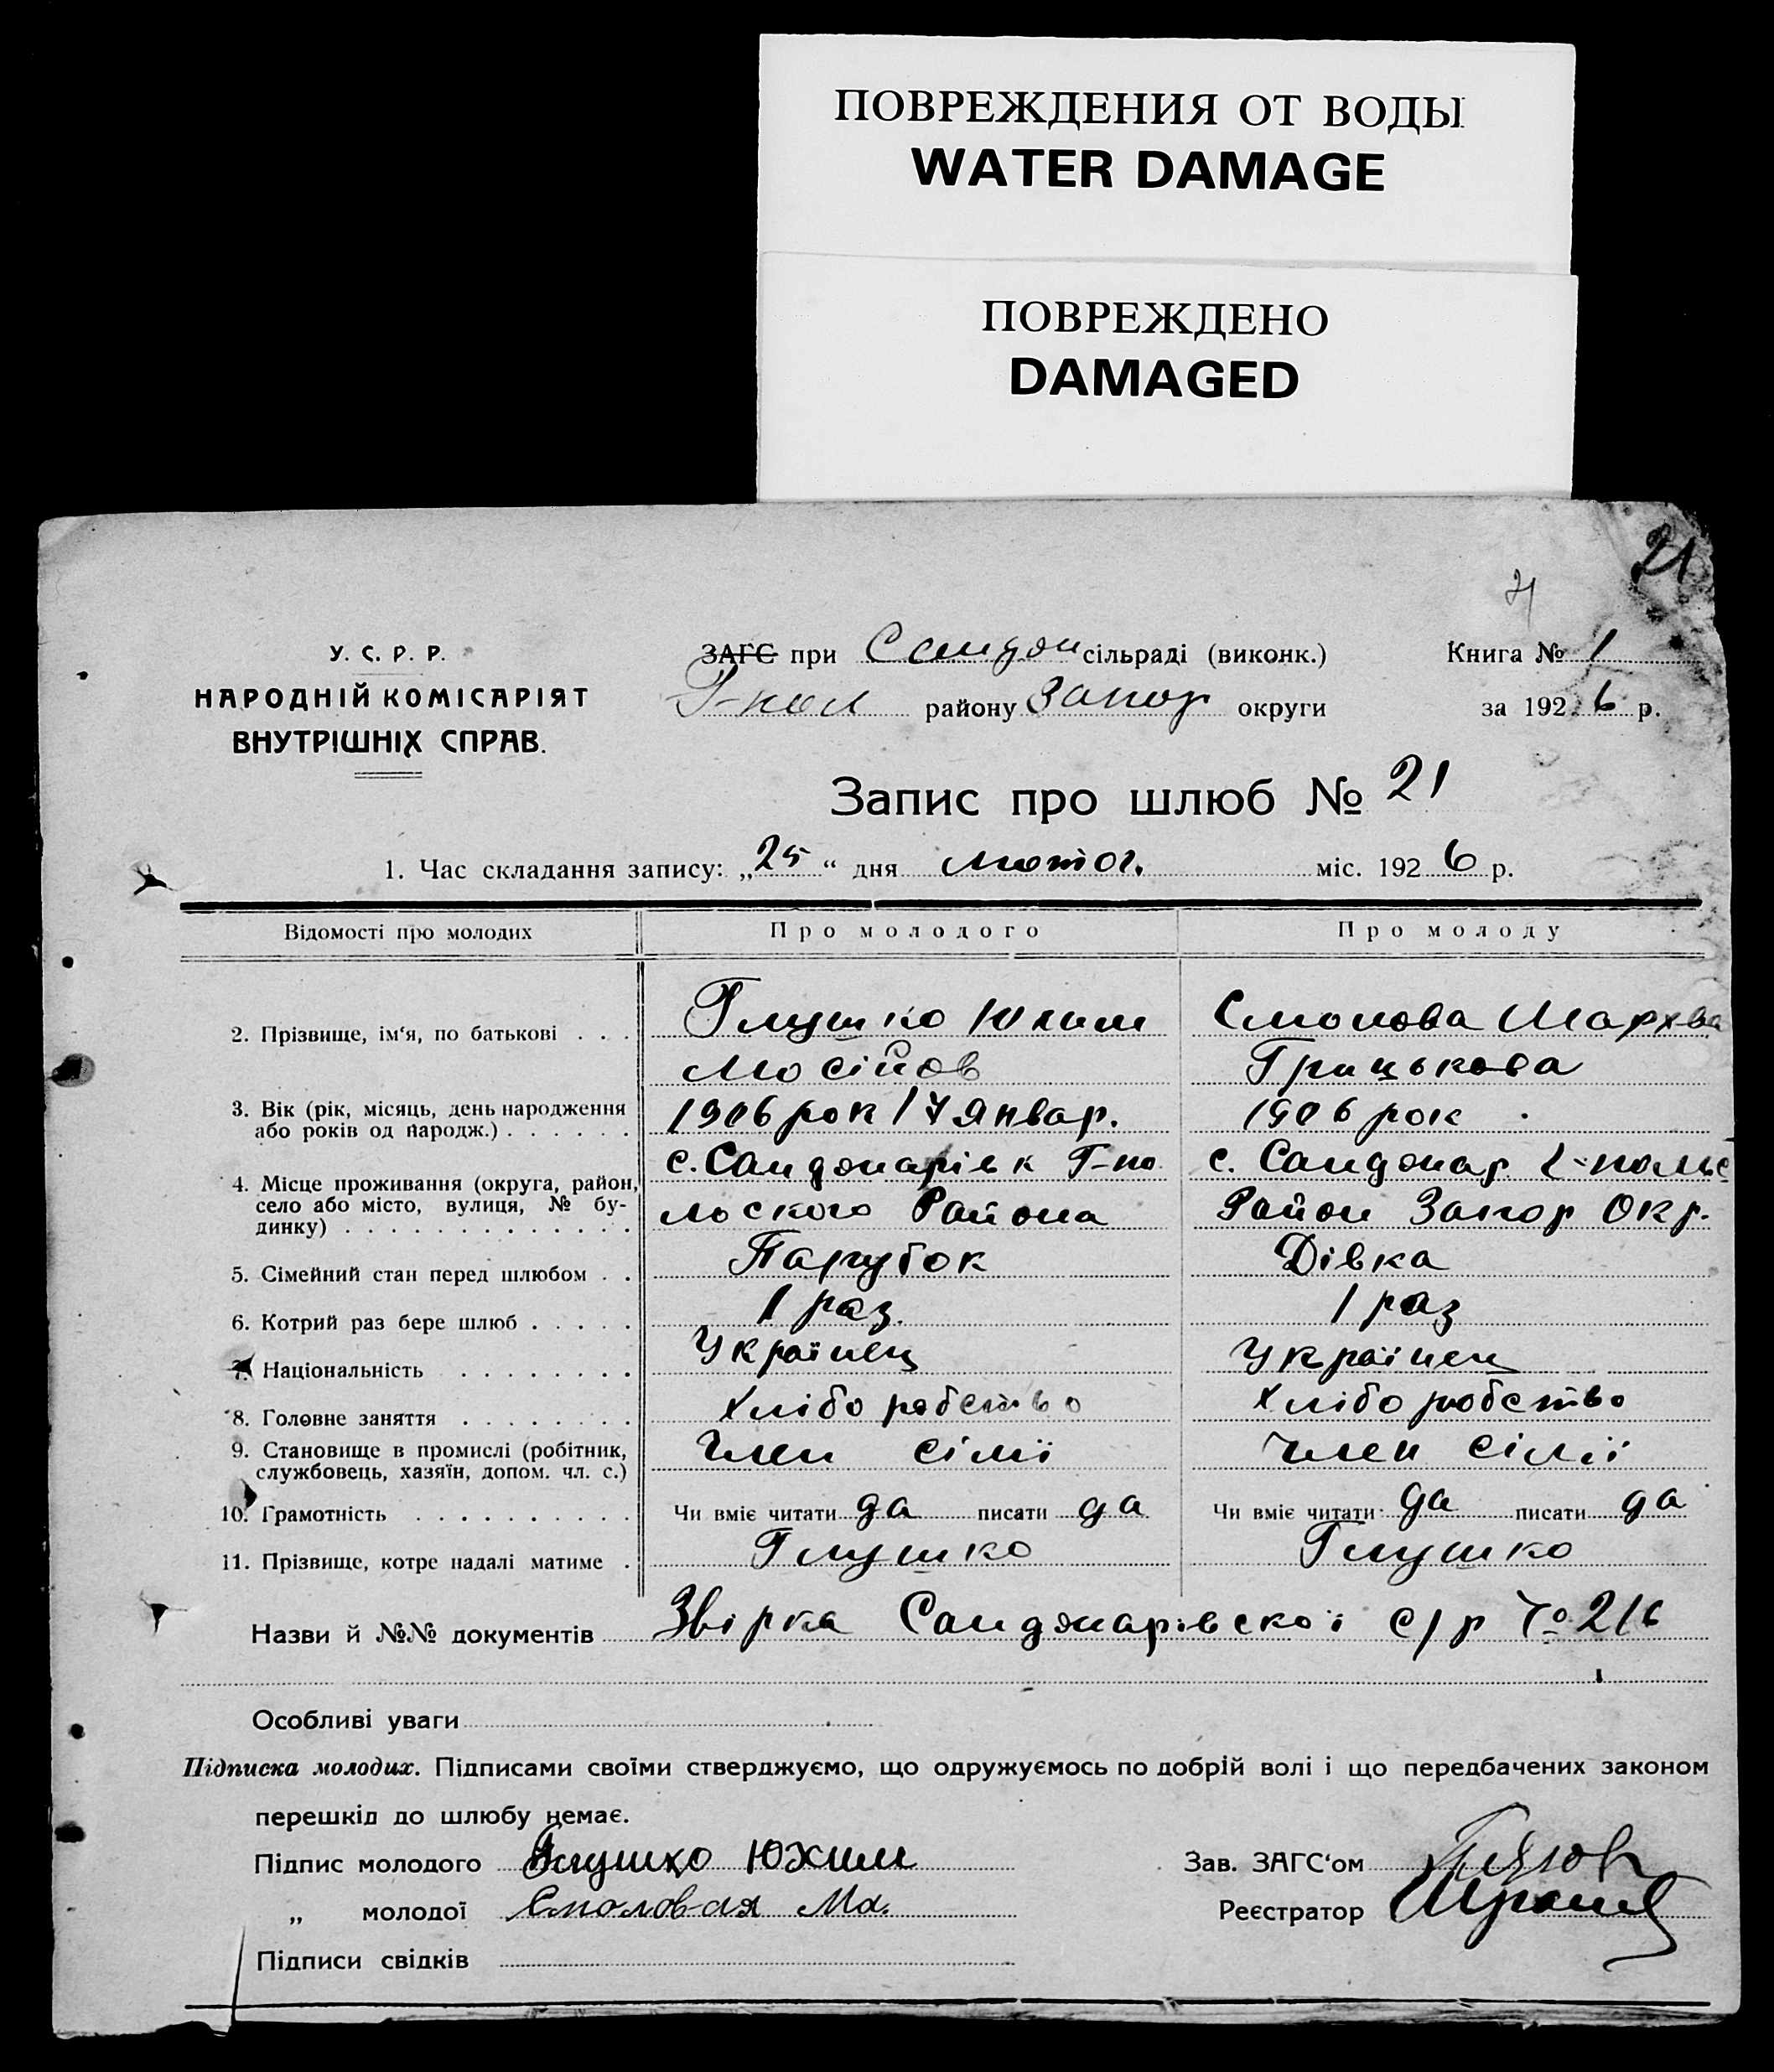 ПОВРЕЖДЕНИЯ ОТ ВОДЫ
WATER DAMAGE
ПОВРЕЖДЕНО
DAMAGED
21
21
У. С. Р. Р.
НАРОДНІЙ КОМІСАРІЯТ
ВНУТРІШНІХ СПРАВ.
ЗАГС при Сандон сільраді (виконк.)
Г-пол району Запор округи
Книга № 1
за 1926 р.
Запис про шлюб № 21
1. Час складання запису: „25“ дня лютог. міс. 1926 р.
Відомості про молодих Про молодого Про молоду
2. Прізвище, ім‘я, по батькові . . . Глушко Юхим Смолова Мархва
Мосійов Грицькова
3. Вік (рік, місяць, день народження або років од народж.) . . . . . . 1906 рок 17 Январ. 1906 рок
4. Місце проживання (округа, район, село або місто, вулиця, № будинку) . . . . . . . . . . . . . с. Сандонарівк Г-по с. Сандонар. Г-польс
льского Района Район Запор Окр.
5. Сімейний стан перед шлюбом . . Парубок Дівка
6. Котрий раз бере шлюб . . . . . 1 раз. 1 раз
7. Національність . . . . . . . . Українец Українец
8. Головне заняття . . . . . . . . Хліборобство Хліборобство
9. Становище в промислі (робітник, службовець, хазяїн, допом. чл. с.) Член сімї Член сімії
10. Грамотність . . . . . . . . . . Чи вміє читати да писати да Чи вміє читати да писати да
11. Прізвище, котре надалі матиме . Глушко Глушко
Назви й №№ документів Звірка Сандонарівскої с/р № 216
Особливі уваги
Підписка молодих. Підписами своїми стверджуємо, що одружуємось по добрій волі і що передбачених законом
перешкід до шлюбу немає.
Підпис молодого Глушко Юхим Зав. ЗАГС‘ом
„ молодої Смоловая Ма. Реєстратор
Підписи свідків